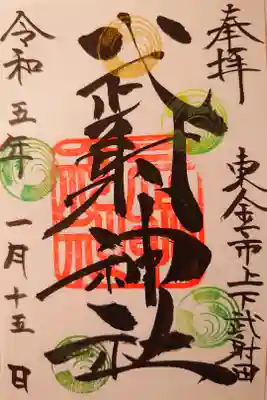 奉拝
東金市上下武射田
武射神社
令和五年一月十五日